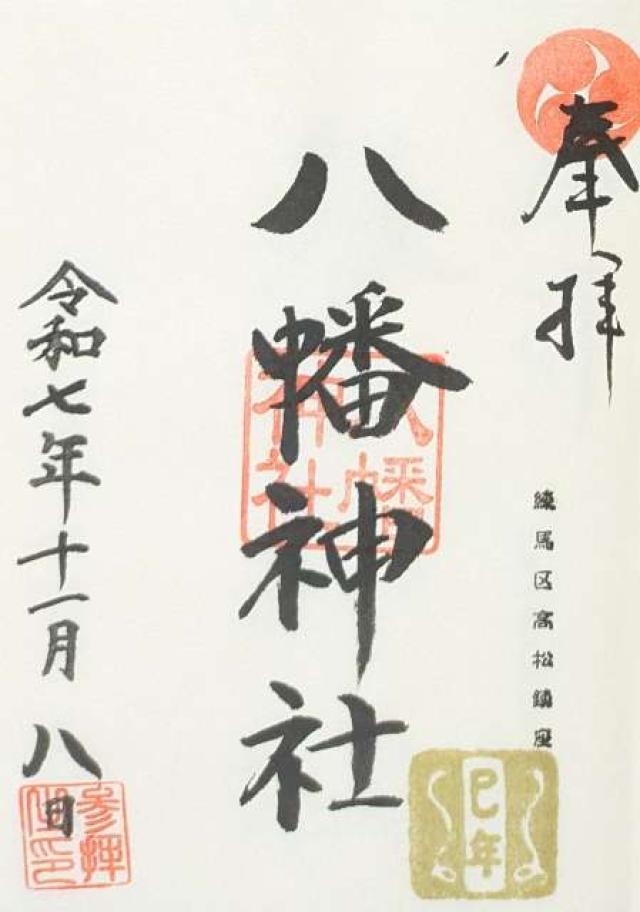 奉拝
練馬区高松鎮座
八幡神社
八幡神社
巳年
令和七年十一月八日
参拝